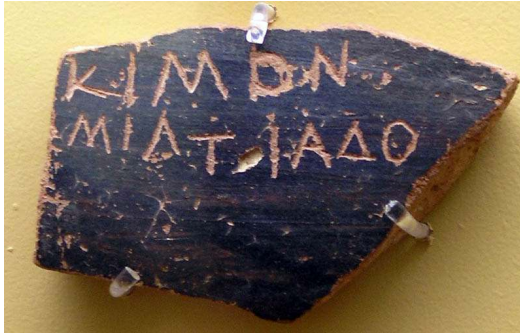 ΚΙΜΟΝ
ΜΙΛΤΙΑΔΟ